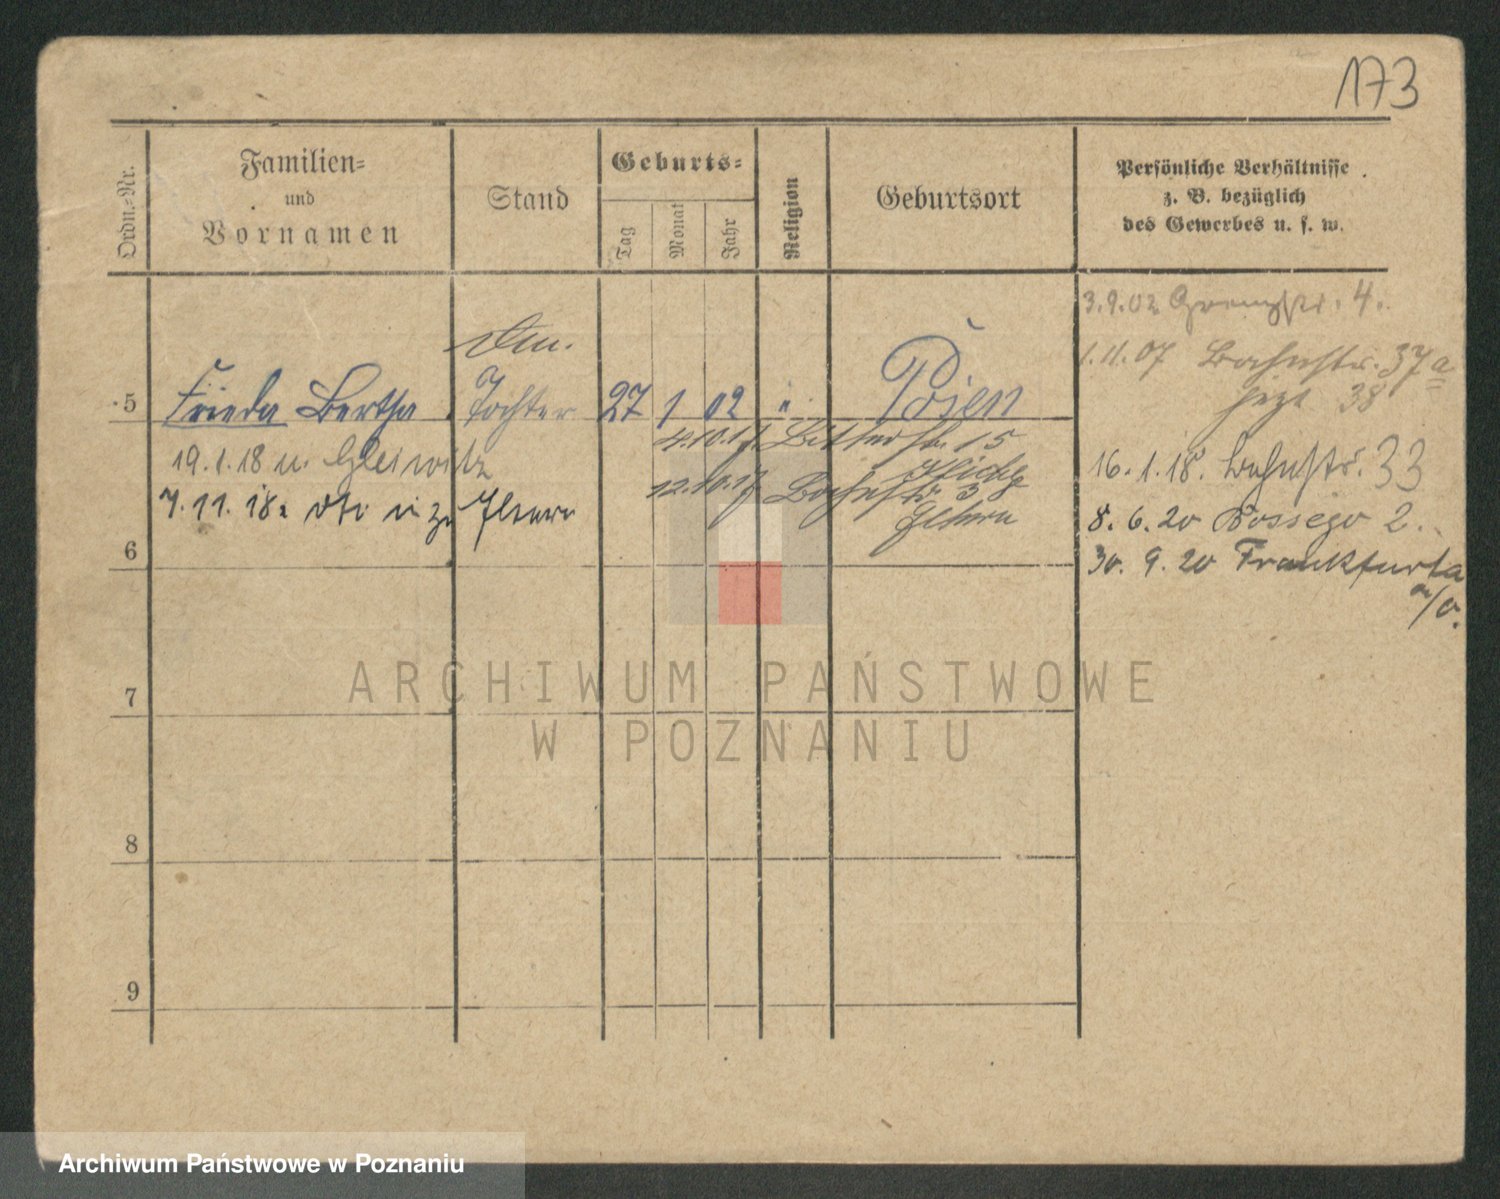 173
Ordn.-Nr.
Familien-
und
Vornamen
Stand
Geburts-
Tag
Monat
Jahr
Religion
Geburtsort
Persönliche Verhältnisse
z. B. bezüglich
des Gewerbes u. s. w.
3.9.02 Grenzstr. 4.
1.11.07 Bahnstr. 37a
jezt 38
5 Frieda Bertha Tochter 27 1 02 " Posen
4.10.17 Bitterstr. 15
12.10.17 Bahnstr. 33
Eltern
19.1.18 n. Gleiwitz
7.11.18. zu Eltern
16.1.18. Bahnstr. 33
8.6.20 2.
30.9.20 Frankfurt a
a/O.
6
7
8
9
ARCHIWUM PAŃSTWOWE
W POZNANIU
Archiwum Państwowe w Poznaniu